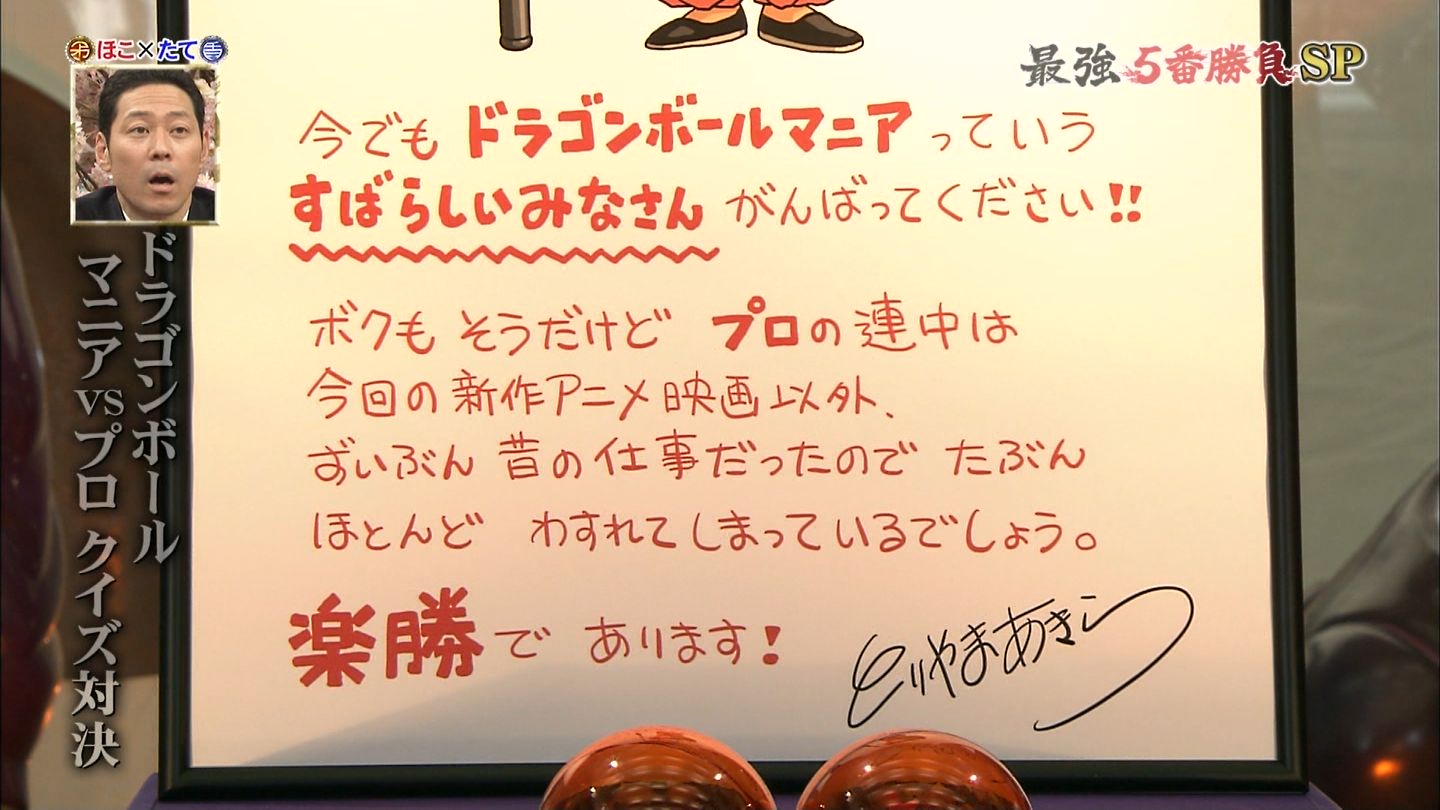 ほこ×たて
最強5番勝負SP
ドラゴンボール
マニアvsプロ クイズ対決
今でも ドラゴンボールマニア っていう
すばらしいみなさん がんばってください!!
ボクも そうだけど プロの 連中は
今回の 新作アニメ映画以外、
ずいぶん 昔の仕事だったので たぶん
ほとんど わすれてしまっているでしょう。
楽勝で あります!
とりやまあきら